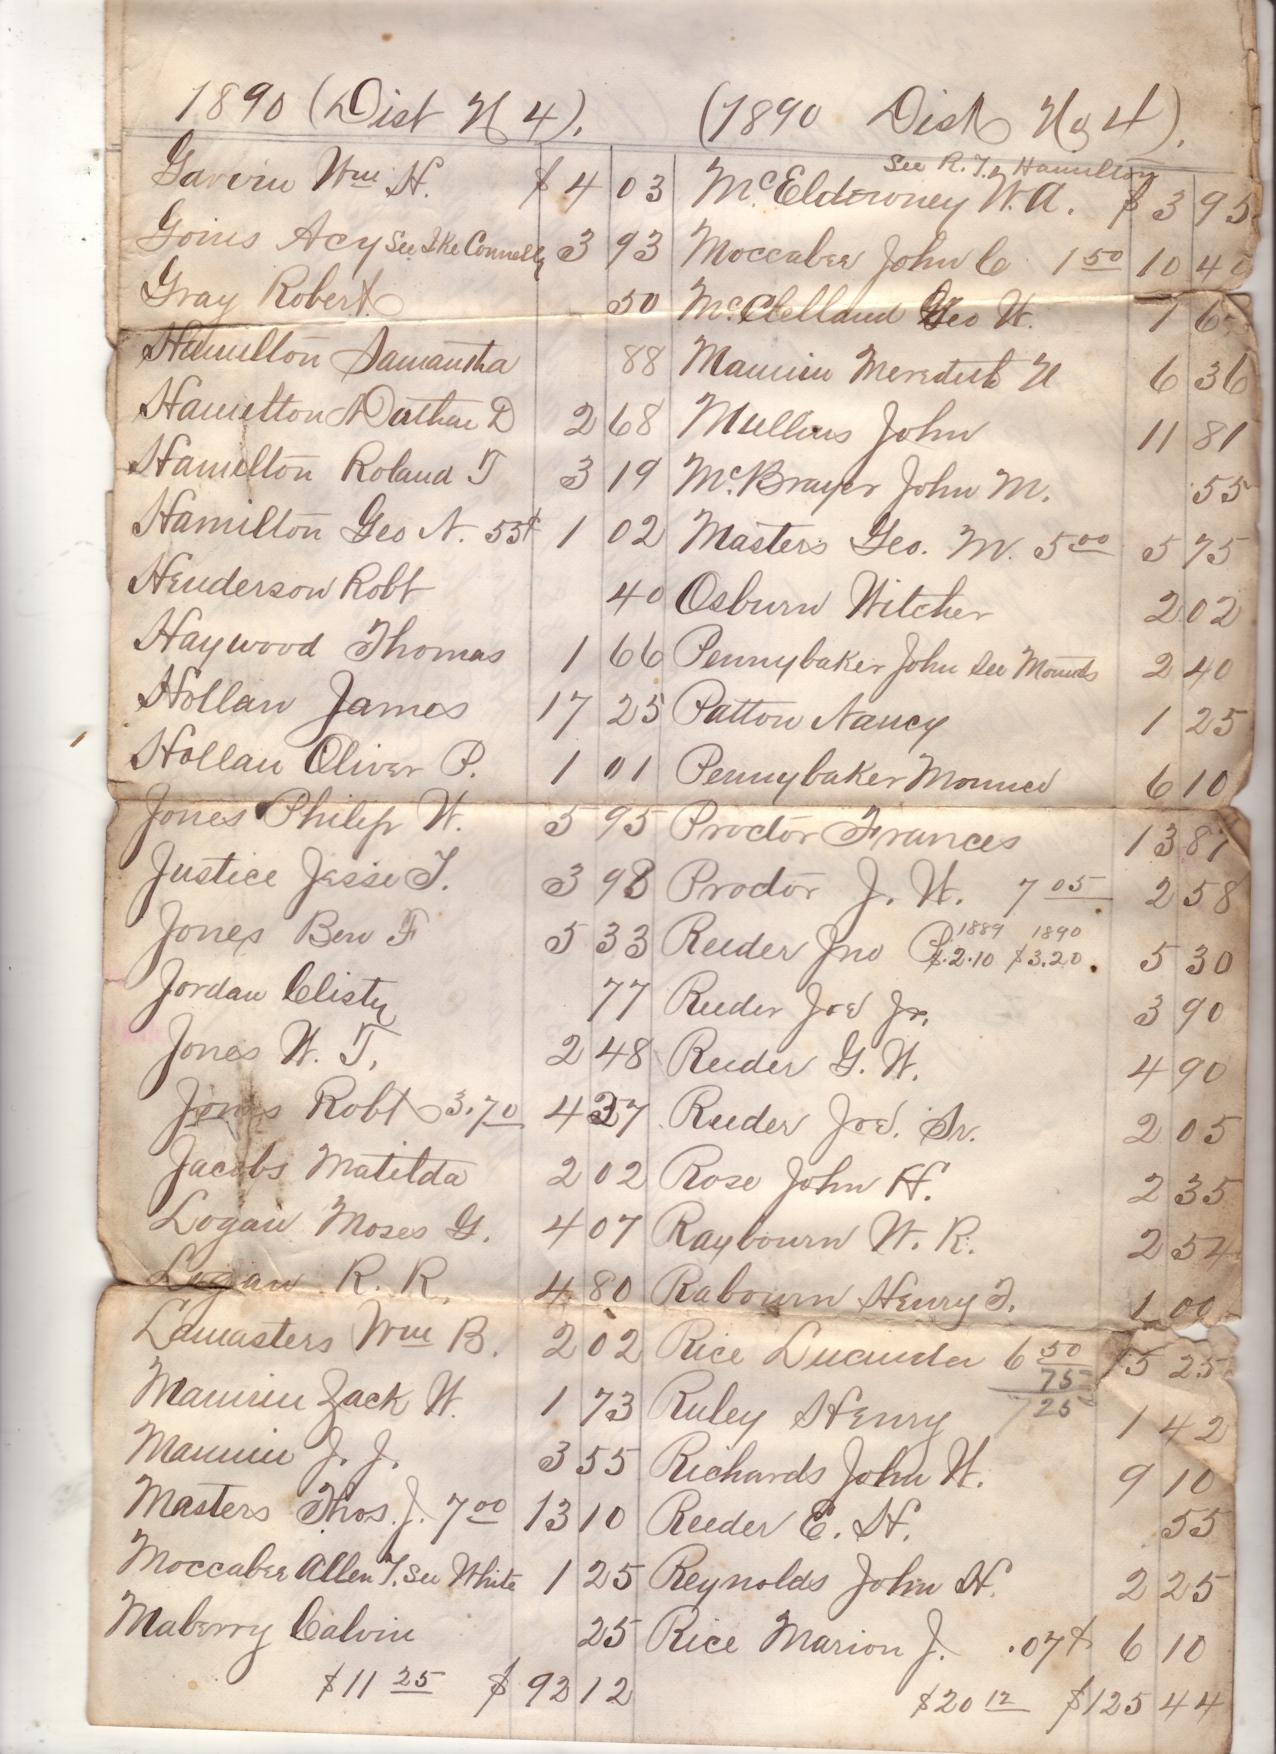 1890 (Dist N 4).
Garvin Wm H. $ 4 03
Goins Acy See Ike Connelly 3 93
Gray Robert 50
Hamilton Samantha 88
Hamilton Nathan D 2 68
Hamilton Roland T 3 19
Hamilton Geo N. 55¢ 1 02
Henderson Robt 40
Haywood Thomas 1 66
Hollan James 17 25
Hollan Oliver P. 1 01
Jones Philip W. 5 95
Justice Jesse T. 3 98
Jones Ben F 5 33
Jordan Clisty 77
Jones W. T. 2 48
Jones Robt 3.70 4 37
Jacobs Matilda 2 02
Logan Moses G. 4 07
Logan R. R. 4 80
Lamasters Wm B. 2 02
Mannin Zack W. 1 73
Mannin J. J. 3 55
Masters Thos. J. 7 00 13 10
Moccabee Allen T. See White 1 25
Maberry Calvin 25
$11 25 $92 12
(1890 Dist No 4).
See R. T. Hamilton
McElderney W. A. $3 95
Moccabee John C 1 50 10 40
McClelland Geo W. 7 65
Mannin Meredith N 6 36
Mullins John 11 81
McBrayer John M. 55
Masters Geo. M. 5 00 5 75
Osburn Witcher 2 02
Pennybaker John See Mounts 2 40
Patton Nancy 1 25
Pennybaker 6 10
Proctor Frances 13 87
Proctor J. W. 7 05 2 58
1889 1890
Reeder Jno P $.2.10 $3.20. 5 30
Reeder Joe Jr. 3 90
Reeder G. W. 4 90
Reeder Joe. Sr. 2 05
Rose John H. 2 35
Raybourn W. R. 2 54
Rabourn Henry T. 1 00
Rice Lucinda 6 50 15 25
75
7 25
Ruley Henry 1 42
Richards John W. 9 10
Reeder E. H. 55
Reynolds John H. 2 25
Rice Marion J. .07¢ 6 10
$20 12 $125 44